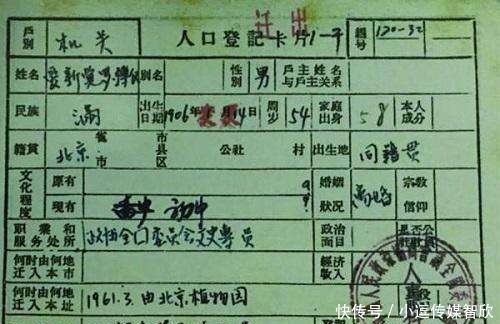 迁出
戶別 机关 人口登記卡片1-子 編号 120-32
姓名 愛新覺羅溥儀 別名 性別 男 戶主姓名与戶主关系
民族 滿 出生日期 1906年 月14日 周岁 54 家庭出身 本人成分
籍貫 北京 省市 市县区 公社 村 出生地 同籍貫
文化程度 原有 婚姻狀況 离婚 宗教信仰
現有 初中
职業和服务处所 政协全国委員会文史專員 政治面目 是否公
何时由何地迁入本市 經济收入
何时由何地迁入本址 1961.3 由北京植物园
快传号 / 小运传媒智欣